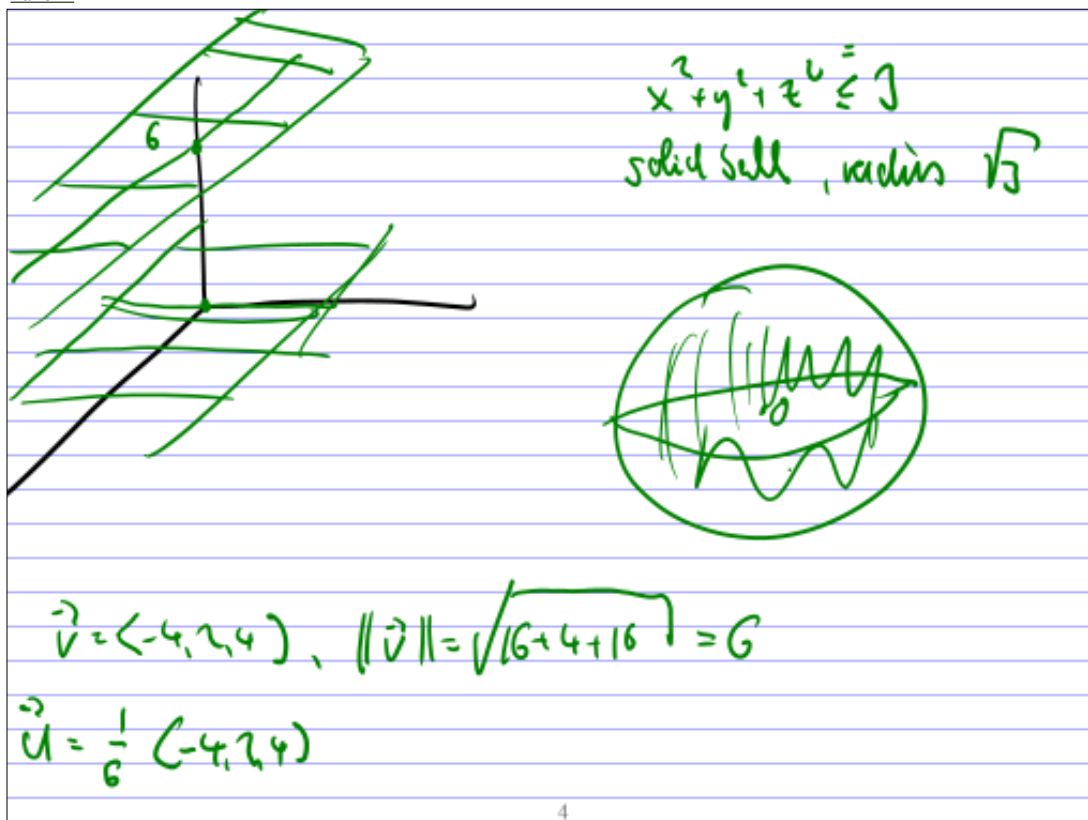 x² + y² + z² ≤ 3
=
solid ball, radius √3
6
0
v⃗ = ⟨-4, 2, 4⟩, ||v⃗|| = √(16+4+16) = 6
u⃗ = 1/6 ⟨-4, 2, 4⟩
4